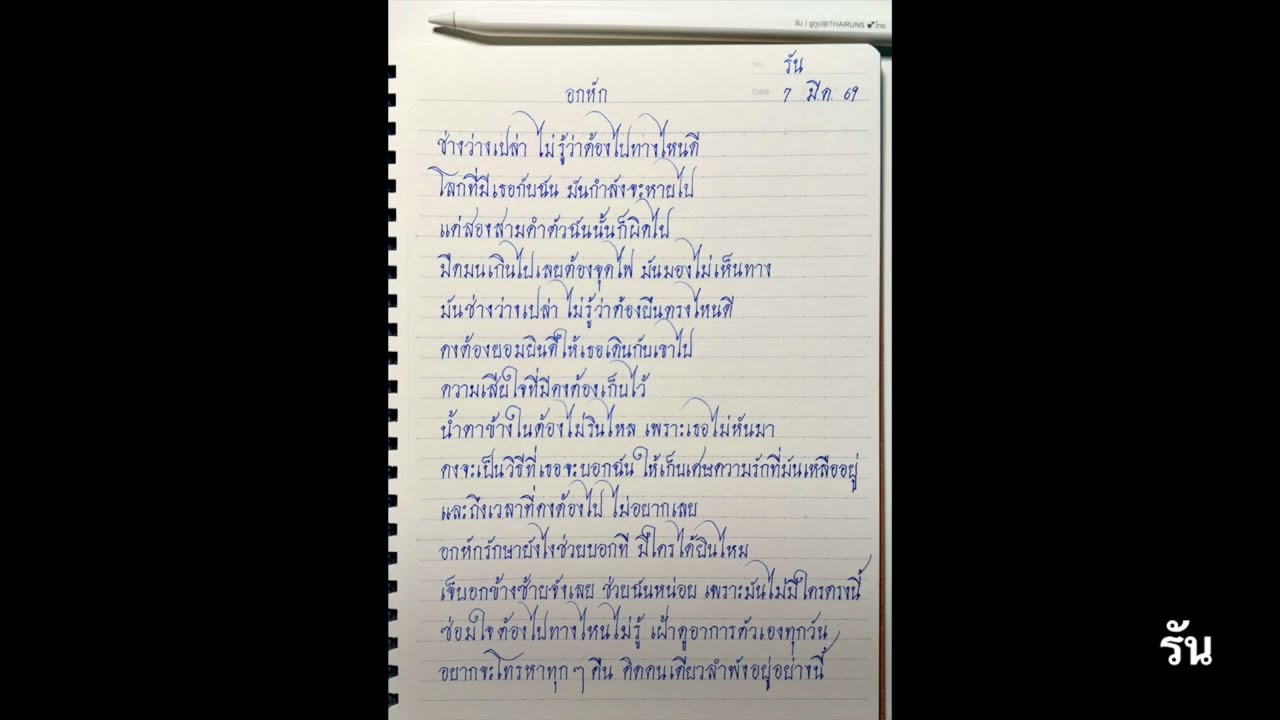 รัน | ยูทูป@THAIRUNS ไทย
No. รัน
อกหัก
Date 7 มี.ค. 69
ช่างว่างเปล่า ไม่รู้ว่าต้องไปทางไหนดี
โลกที่มีเธอกับฉัน มันกำลังจะหายไป
แค่สองสามคำตัวฉันนั้นก็ผิดไป
มืดมนเกินไปเลยต้องจุดไฟ มันมองไม่เห็นทาง
มันช่างว่างเปล่า ไม่รู้ว่าต้องยืนตรงไหนดี
คงต้องยอมยินดีให้เธอเดินกับเขาไป
ความเสียใจที่มีคงต้องเก็บไว้
น้ำตาข้างในต้องไม่รินไหล เพราะเธอไม่หันมา
คงจะเป็นวิธีที่เธอจะบอกฉัน ให้เก็บเศษความรักที่มันเหลืออยู่
และถึงเวลาที่คงต้องไป ไม่อยากเลย
อกหักรักษายังไงช่วยบอกที มีใครได้ยินไหม
เจ็บอกข้างซ้ายจังเลย ช่วยฉันหน่อย เพราะมันไม่มีใครตรงนี้
ซ่อมใจต้องไปทางไหนไม่รู้ เฝ้าดูอาการตัวเองทุกวัน
อยากจะโทรหาทุกๆ คืน คิดคนเดียวลำพังอยู่อย่างนี้
รัน